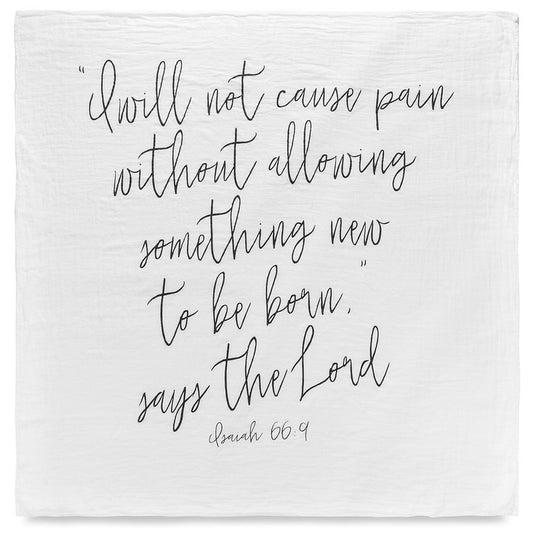 “I will not cause pain
without allowing
something new
to be born,”
says the Lord
Isaiah 66:9